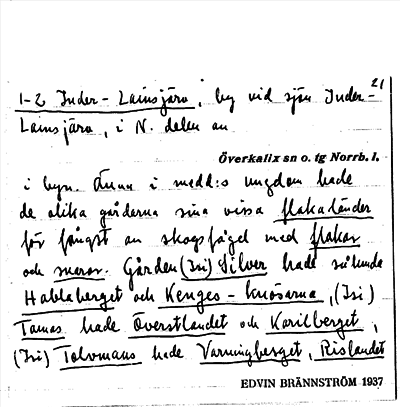 21
1-2 Inder-Lainsjärv, by vid sjön Inder-
Lainsjärv, i N. delen av
Överkalix sn o. tg Norrb. l.
i byn. Ännu i medd:s ungdom hade
de olika gårdarna sina vissa flakaländer
för fångst av skogsfågel med flakar
och snaror. Gården (Isi) Silver hade sålunda
Hablaberget och Kenges-knösarna, (Isi)
Tomas hade Överstlandet och Karilberget,
(Isi) Tolvmans hade Varningberget, Rislandet
EDVIN BRÄNNSTRÖM 1937